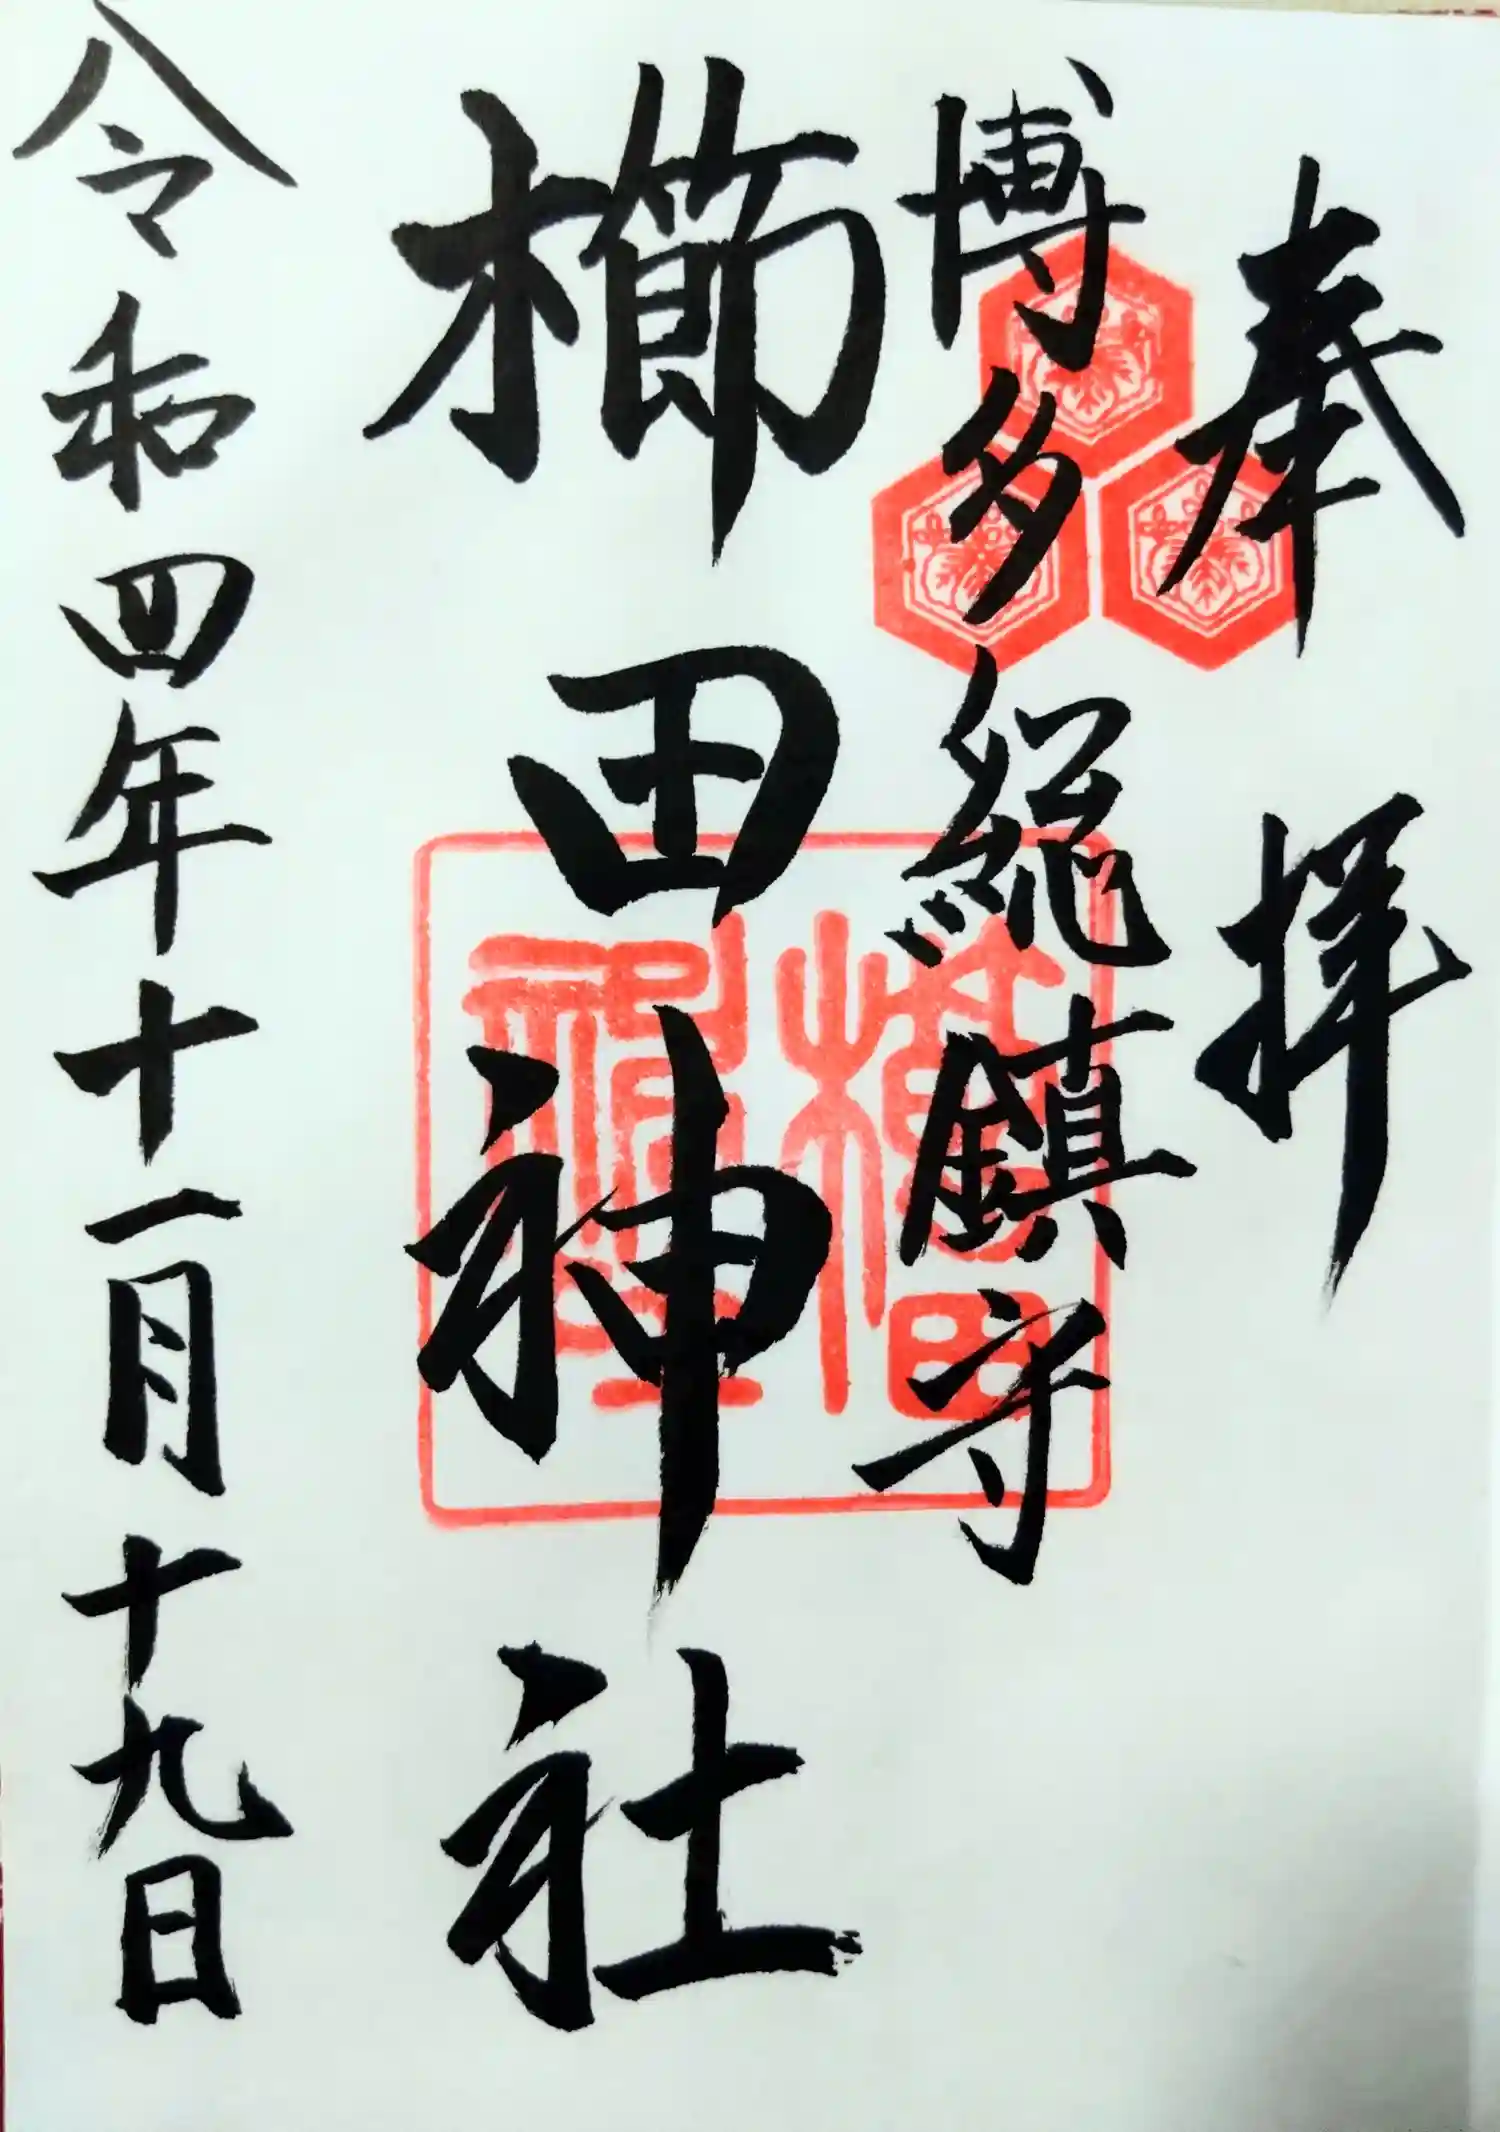 奉拝
博多総鎮守
櫛田神社
令和四年十一月十九日
櫛田
神社